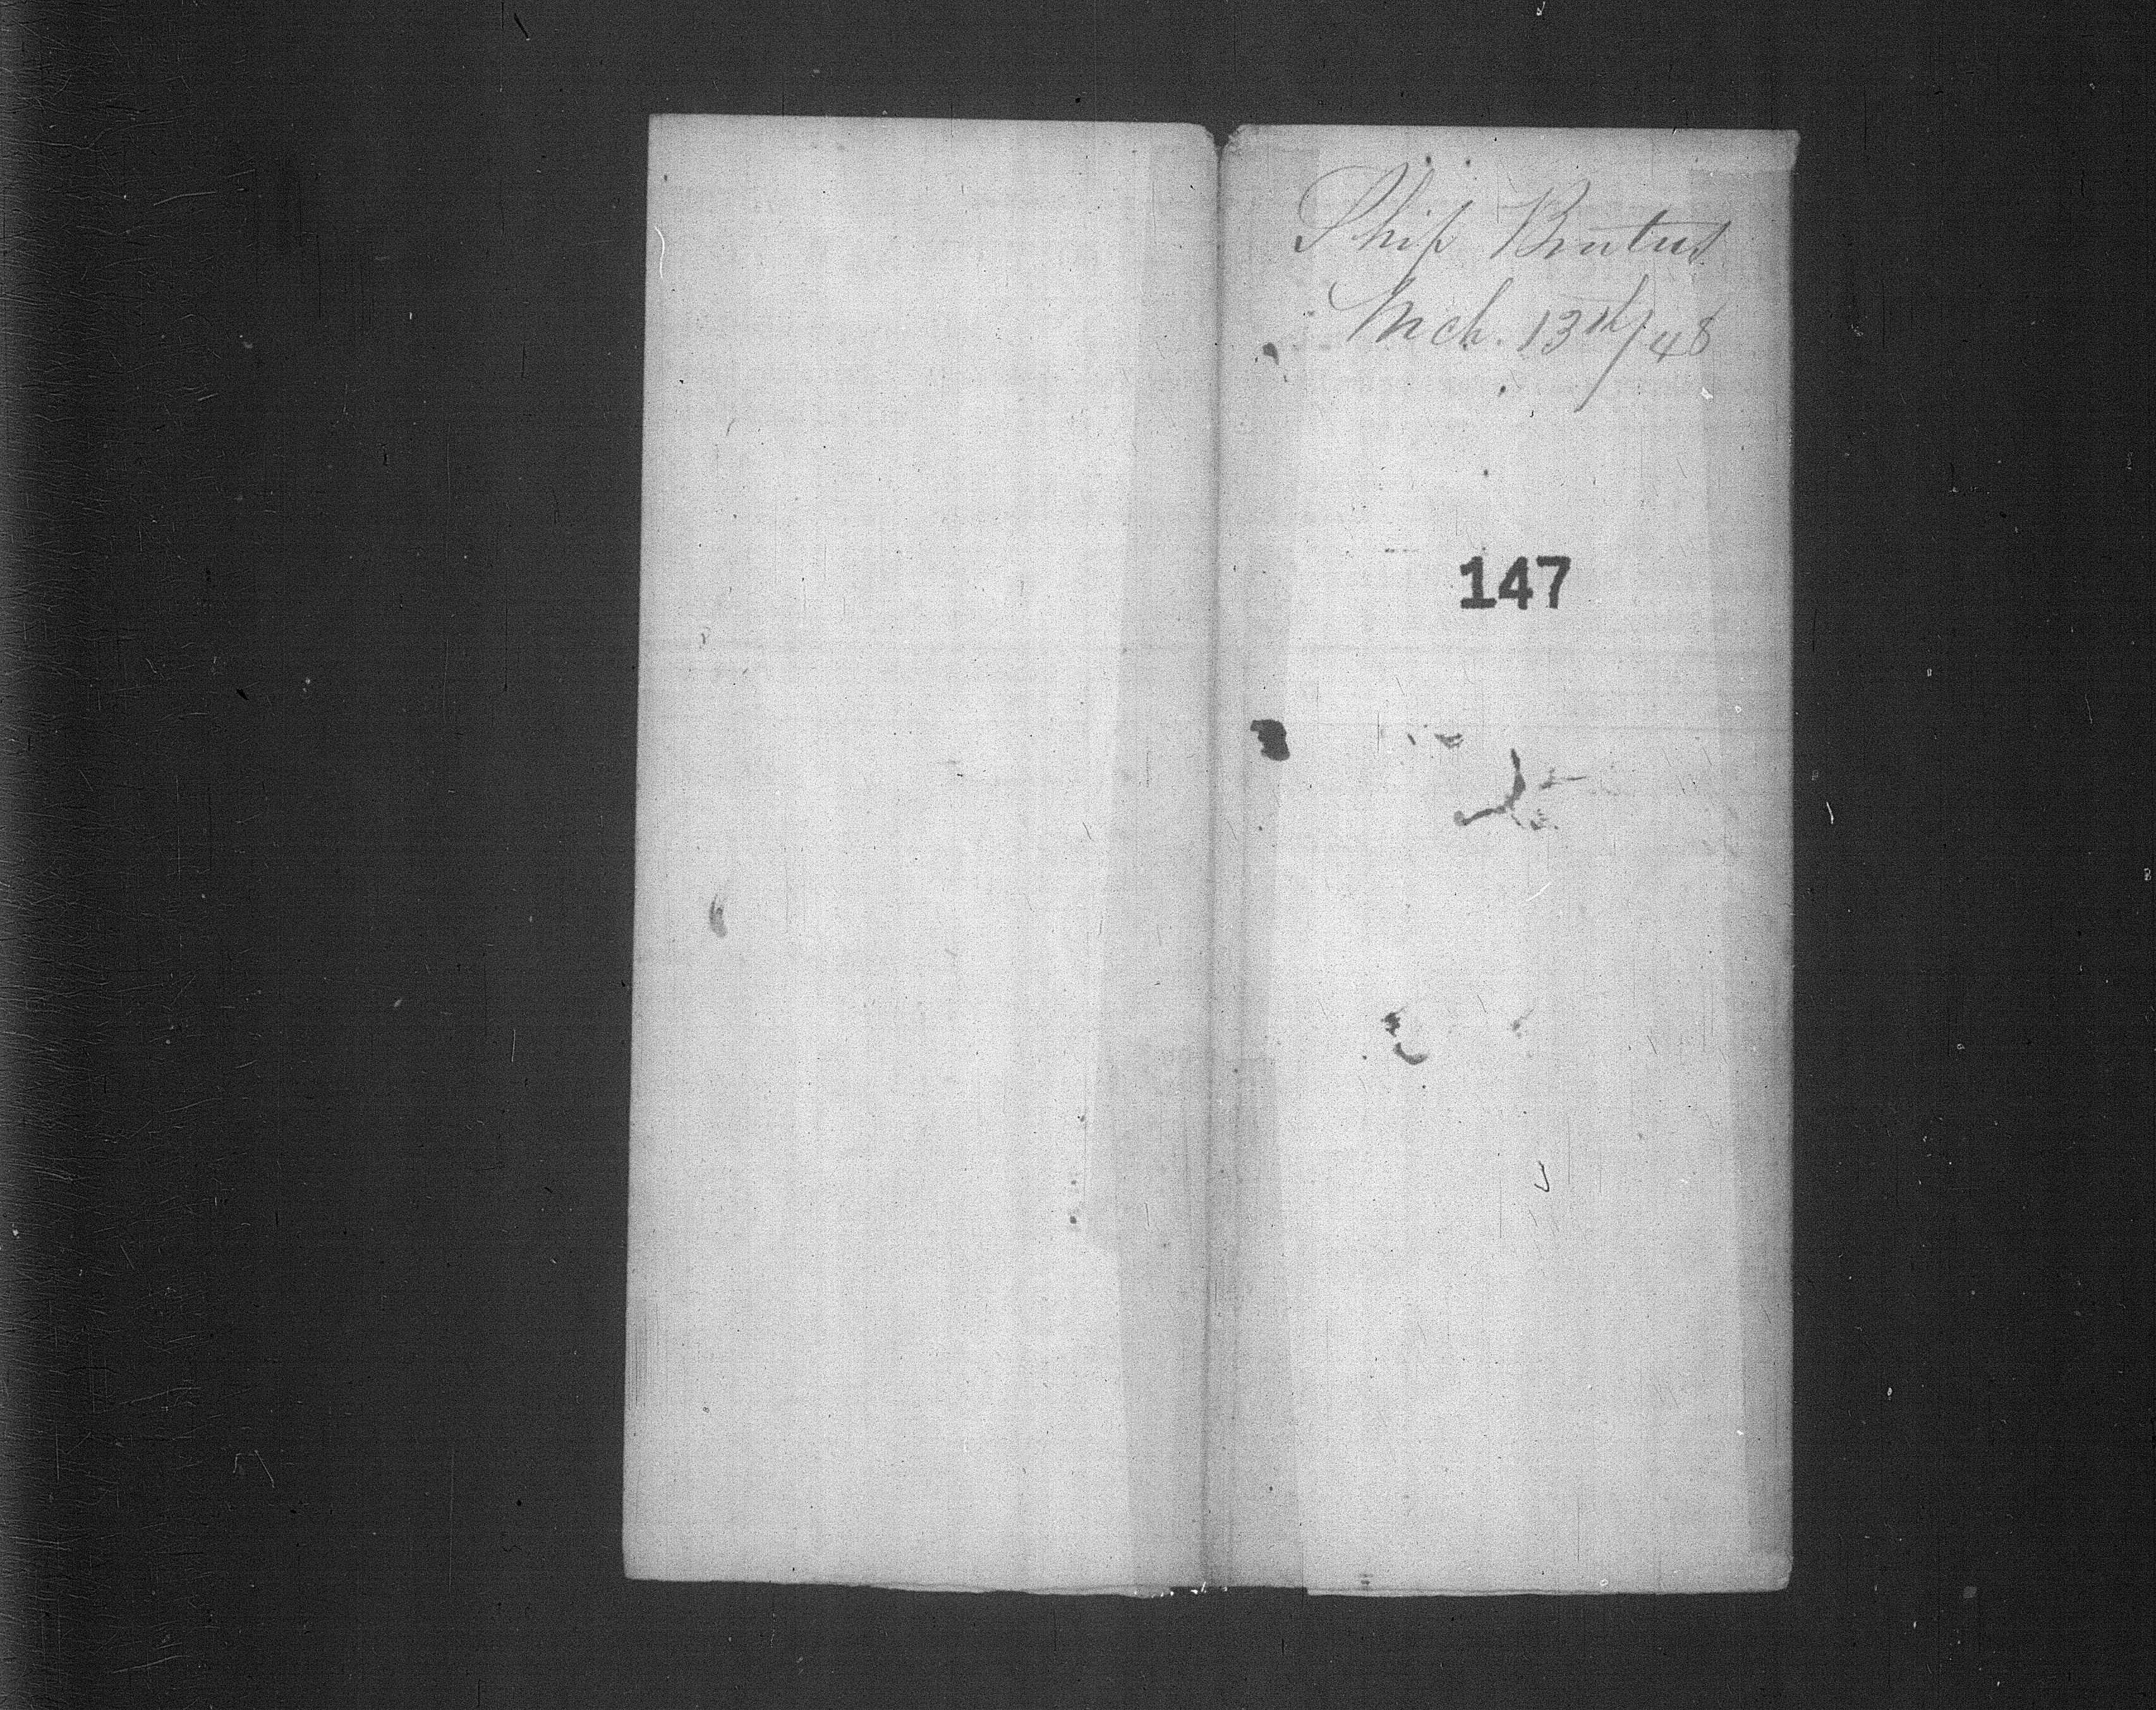 Ship Brutus
Mch. 13th/48
147